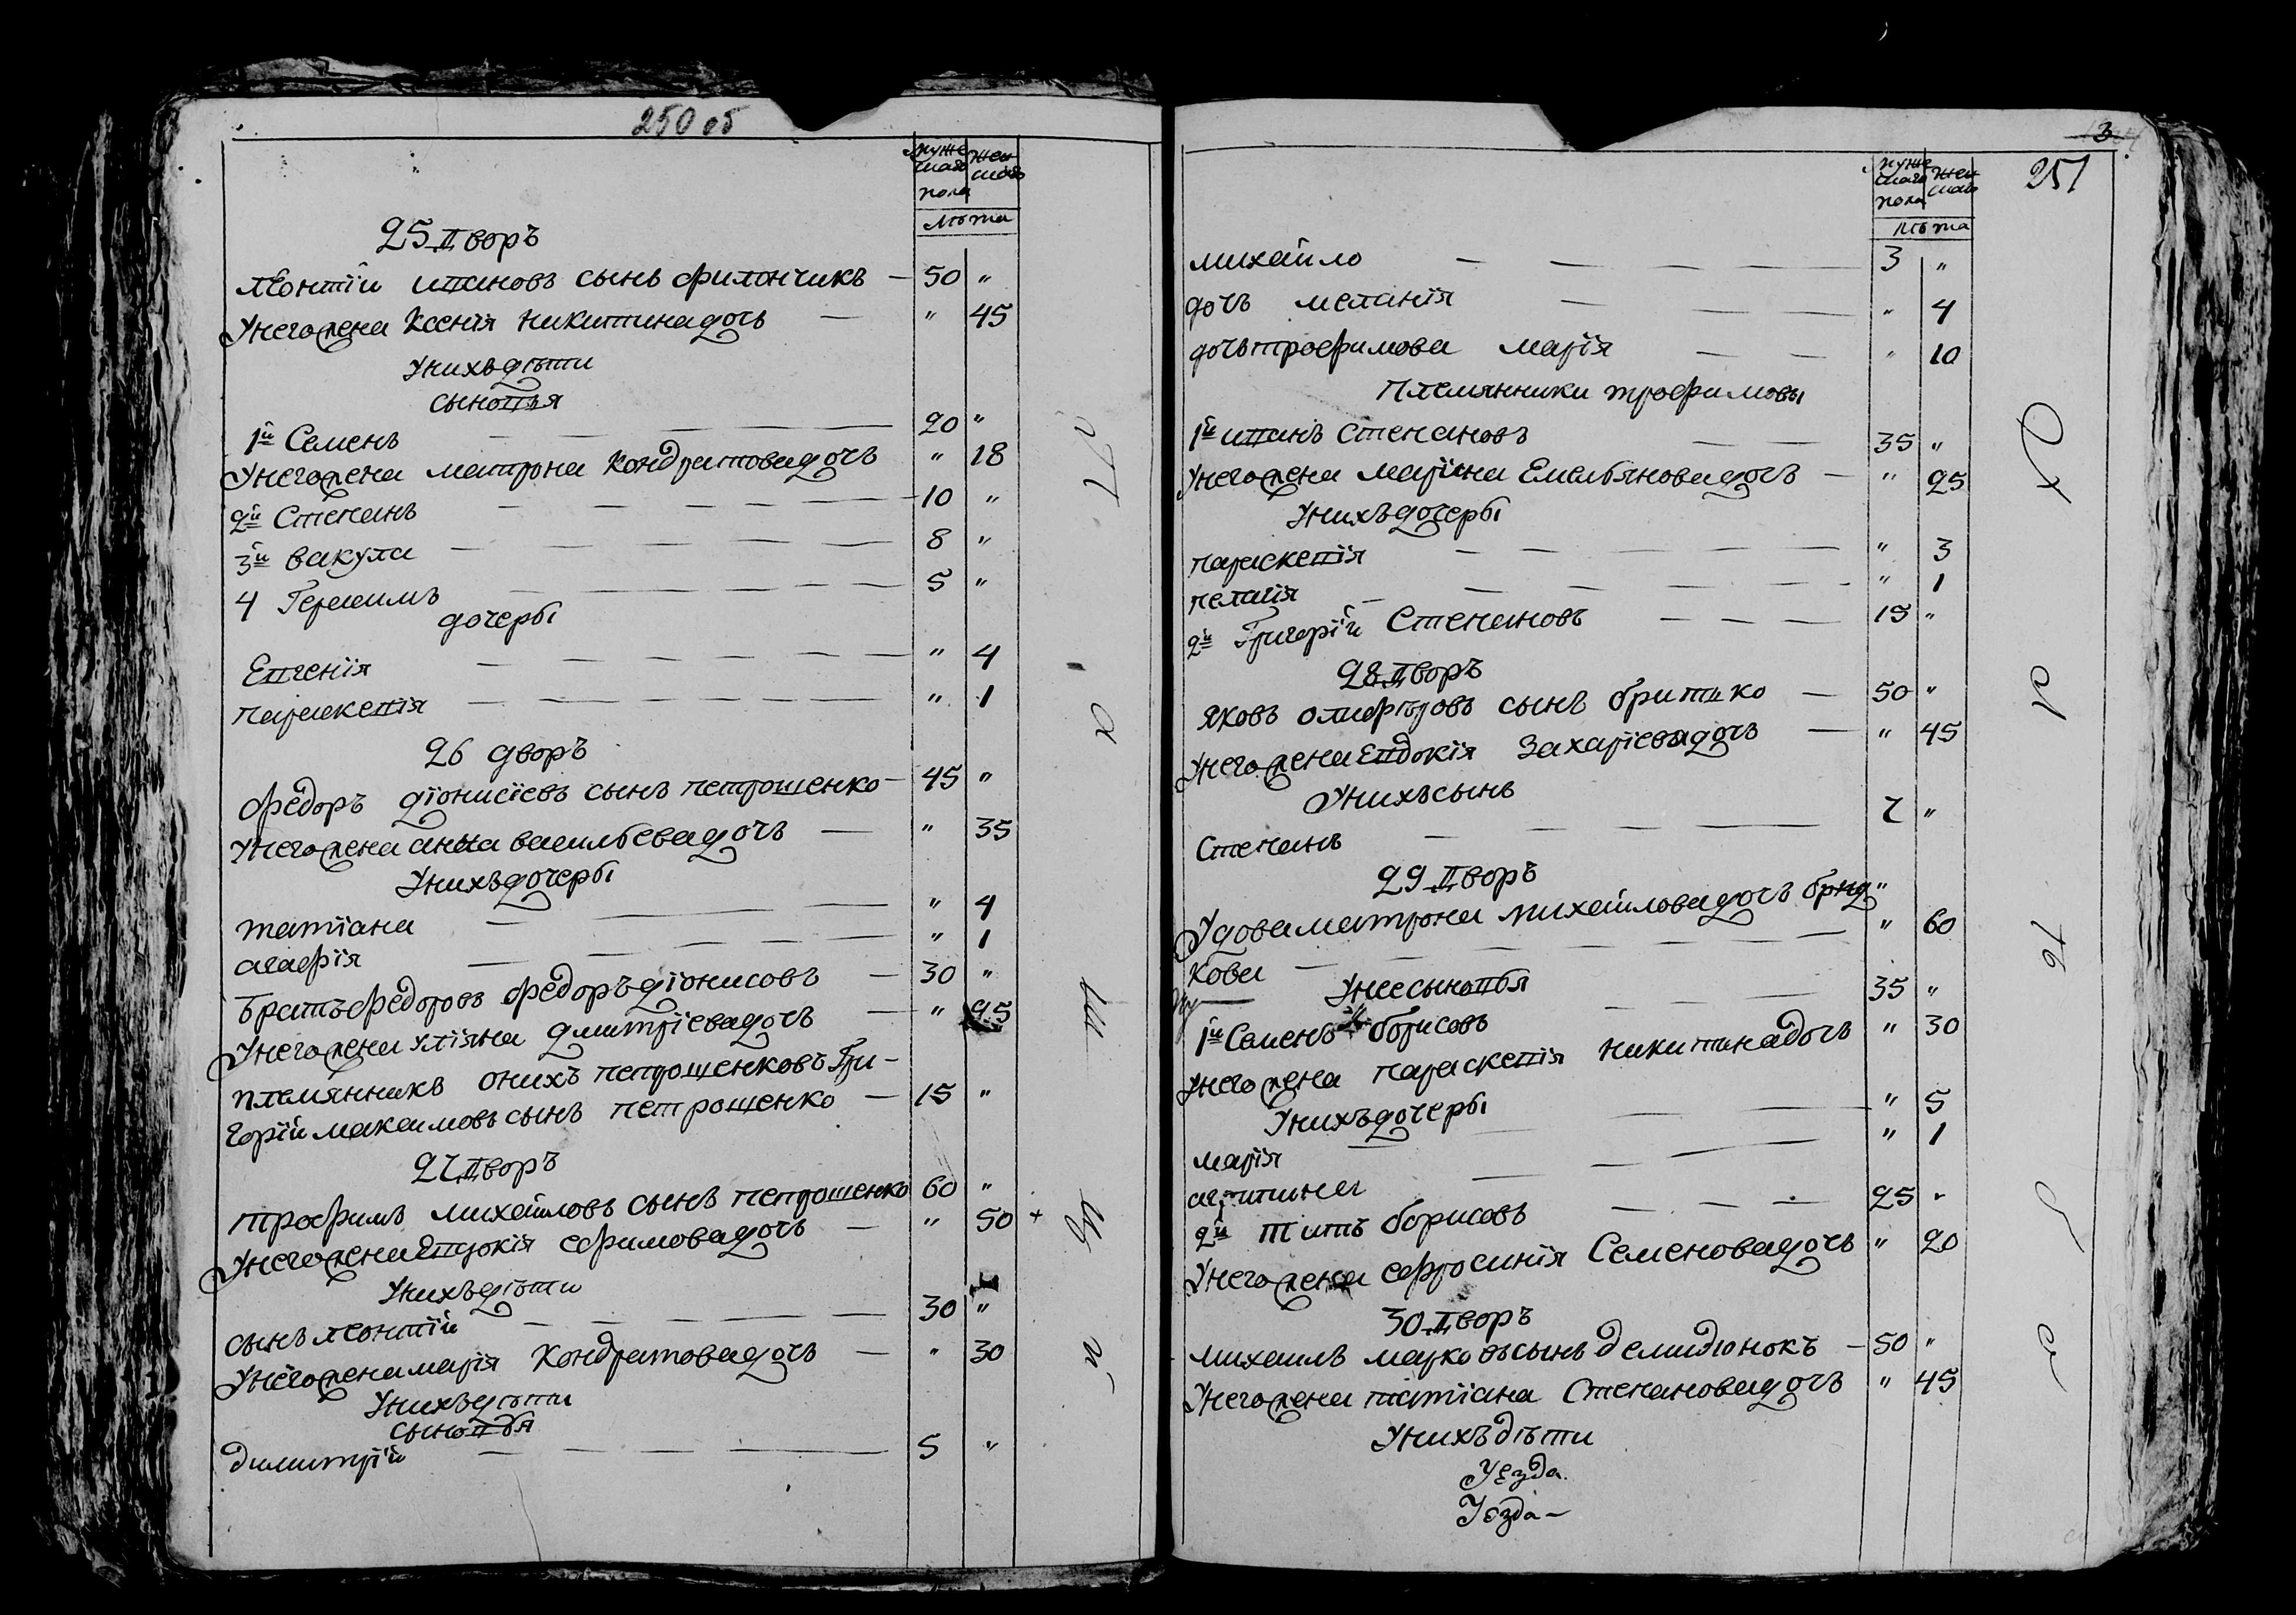 250 об
муже
скаго
пола
жен
скаго
лѣта
25 дворъ
леонтій ивановъ сынъ филончикъ — 50 "
Унегожена Ксенія никитинадочь — " 45
Унихъдѣти
сыновья
1й Семенъ — 20 "
Унегожена матрона кондратовадочь " 18
2й Степанъ — 10 "
3й вакула — 8 "
4 Герасимъ — 5 "
дочеры
Евгенія — " 4
параскевія — " 1
26 дворъ
федоръ діонисіевъ сынъ петрошенко — 45 "
Унегожена анна васильевадочь — " 35
Унихъдочеры
татіана — " 4
агафія — " 1
братъфедоровъ федоръдіонисовъ — 30 "
Унегожена уліяна дмитріевадочь — " 25
племянникъ онихъ петрошенковъ Гри-
горій максимовъ сынъ петрошенко — 15 "
27 дворъ
трофимъ михайловъ сынъ петрошенко 60 "
Унегожена Евдокія ефимовадочь — " 50 +
Унихъдѣти
сынъ леонтій — 30 "
Унегожена марія Кондратовадочь — " 30
Унихъдѣти
сыновья
димитрій — 5 "
3
251
муже
скаго
пола
жен
скаго
лѣта
михайло — 3 "
дочь меланія — " 4
дочьтрофимова марія — " 10
племянники трофимовы
1й иванъ степановъ — 35 "
Унегожена маріана Емельяновадочь — " 25
Унихъдочеры
параскевія — " 3
пелагія — " 1
2й Григорій Степановъ — 15 "
28 дворъ
яковъ олиферовъ сынъ бритико — 50 "
Унегожена Евдокія Захаріевадочь — " 45
Унихъсынъ
Степанъ — 7 "
29 дворъ
Удоваматрона михайловадочь брид "
кова — " 60
Унеесыновья
1й Семенъ борисовъ — 35 "
Унегожена параскевія никитинадочь " 30
Унихъдочеры
марія — " 5
агрипина — " 1
2й титъ борисовъ — 25 "
Унегожена ефросинія Семеновадочь " 20
30 дворъ
михаилъ марковъсынъ демидюнокъ — 50 "
Унегожена татіана Степановадочь " 45
Унихъдѣти
Уезда.
Уезда —